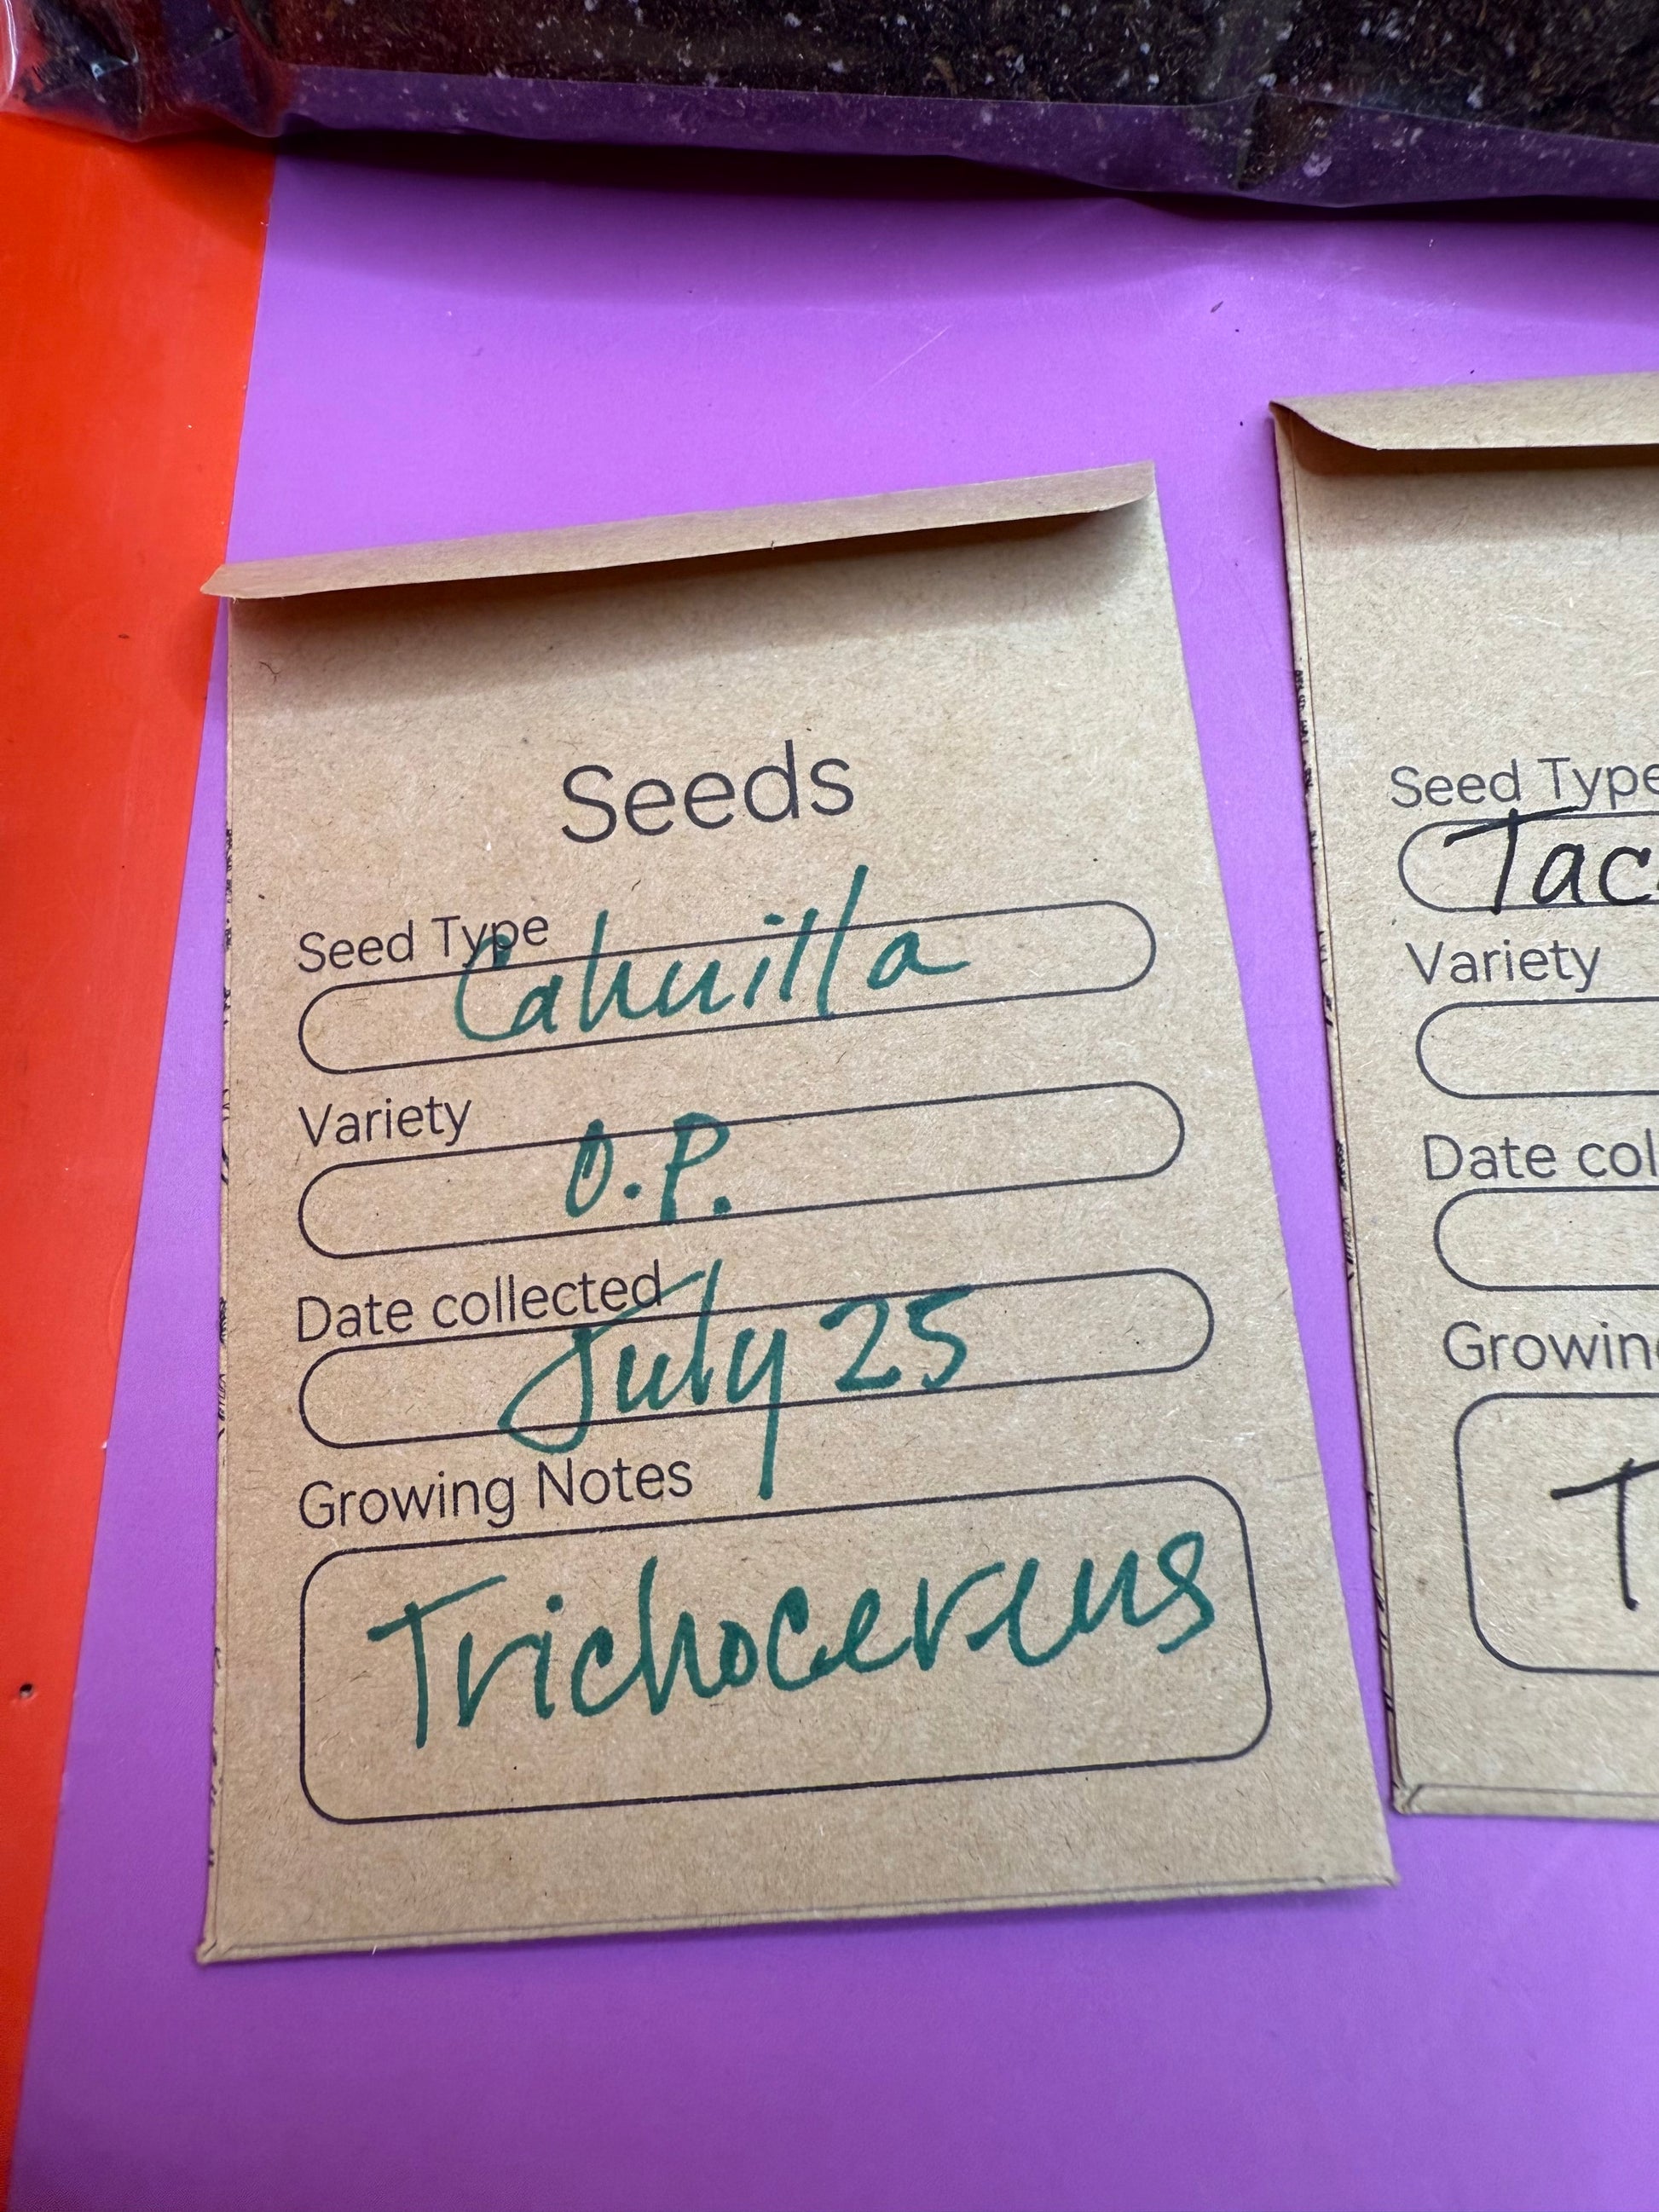 Seeds
Seed Type
Cahuilla
Variety
O.P.
Date collected
July 25
Growing Notes
Trichocereus
Seed Type
Variety